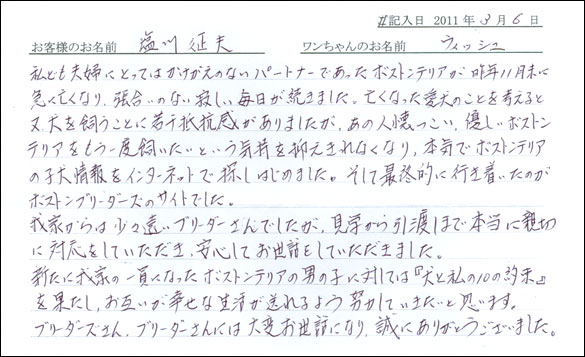 ご記入日 2011年 3月 6日
お客様のお名前 塩川 征夫 ワンちゃんのお名前 ウィッシュ
私ども夫婦にとってはかけがえのないパートナーであったボストンテリアが昨年11月末に
急に亡くなり、張合いのない寂しい毎日が続きました。亡くなった愛犬のことを考えると
又、犬を飼うことに若干抵抗感がありましたが、あの人懐っこい、優しいボストン
テリアをもう一度飼いたいという気持を抑えきれなくなり、本気でボストンテリア
の子犬情報をインターネットで探しはじめました。そして最終的に行き着いたのが
ボストンブリーダーズのサイトでした。
我家からは少々遠いブリーダーさんでしたが、見学から引渡しまで本当に親切
に対応をしていただき、安心してお世話をしていただきました。
新たに我家の一員になったボストンテリアの男の子に対しては『犬と私の10の約束』
を果たし、お互いが幸せな生活が送れるよう努力していきたいと思います。
ブリーダーズさん、ブリーダーさんには大変お世話になり、誠にありがとうございました。